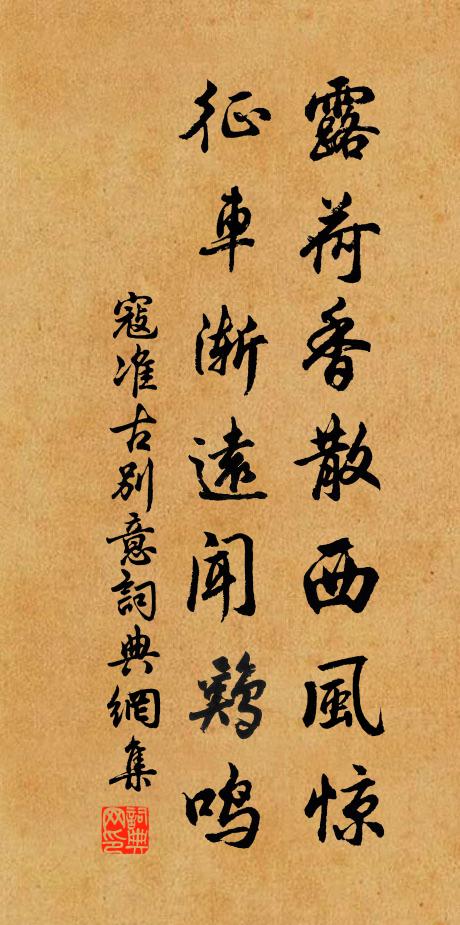 露荷香散西風惊
征車漸遠闻鷄鸣
寇准古别意詞典網集
詞典网印